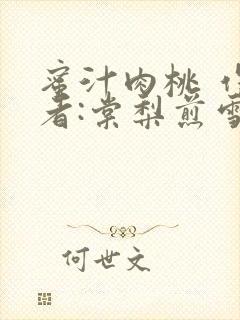 蜜汁肉桃
者:棠梨煎雪
何世文